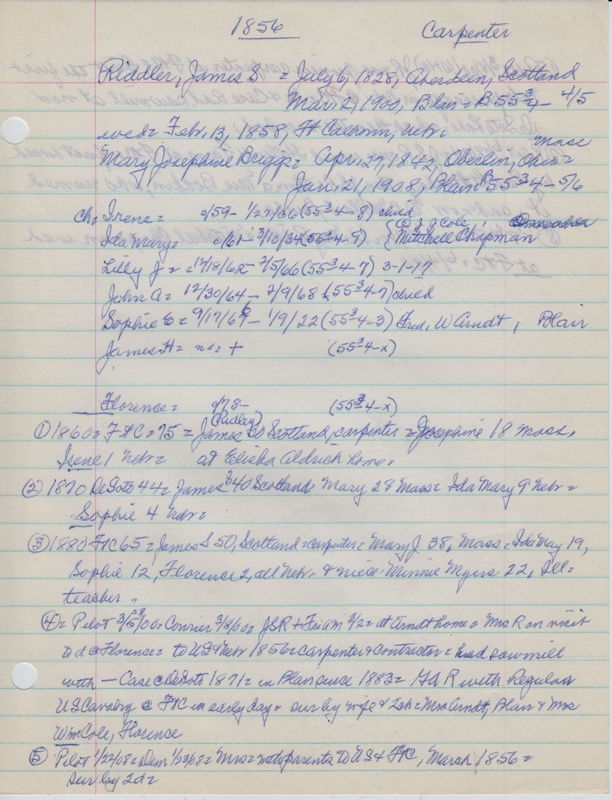 1856 Carpenter
Riddler, James S = July 6, 1828, Aberdeen, Scotland
Mar. 2, 1900, Blair = B 55³4- 4/5
wed = Febr. 13, 1858, Ft Calhoun, Nebr.
Mass
Mary Josephine Briggs = Apr. 27, 1842, Oberlin, Ohio =
Jan, 21, 1908, Blair B 55³4-5/6
ch: Irene = c/59- 1/27/66 (55³4-8) child
Ida Mary = c/61- 3/10/34 (55³4-9) { C J Cole,
{ Mitchell Chapman
Lilly J = c 12/18/62- 2/5/66 (55³4-7) 3-1-17
John A = 12/30/64- 2/9/68 (55³4-7) died
Sophie E = 9/17/67- 1/9/22 (55³4-3) Fred, W Arndt, Blair
James H = nd = + (55³4-x)
Florence = c/78- (55³4-x)
(Ridley)
① 1860 = FtC = 75 = James 30 Scotland, carpenter = Josephine 18 Mass.
Irene 1 Nebr = at Elisha Aldrich home.
② 1870 DeSoto 44 = James S 40 Scotland = Mary 28 Mass = Ida Mary 9 Nebr =
Sophie 4 Nebr =
③ 1880 FtC 65 = James S 50, Scotland = carpenter = Mary J 38, Mass = Ida May 19,
Sophie 12, Florence 2, all Nebr. & niece = Minnie Myers 22, Ill =
teacher.
④ = Pilot 3/5/00 = Courier 3/8/00 = JSR + Fri am 3/2 = at Arndt home = Mrs R on visit
to d @ Florence = to US & Nebr 1856 = carpenter & contractor = had sawmill
with — Case @ DeSoto 1871 = in Blair since 1883 = GAR with Regular
US Cavalry @ FtC in early day & sur by wife & 2ch = Mrs Arndt, Blair & Mrs
Wm Cole, Florence
⑤ Pilot 1/22/08 = Dem 1/23/08 = Mrs = w parents to US & FtC, March 1856 =
sur by 2d =